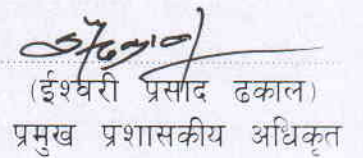 (ईश्वरी प्रसाद ढकाल)
प्रमुख प्रशासकीय अधिकृत